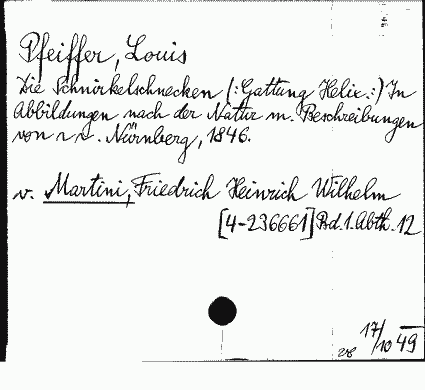 Pfeiffer, Louis
Die Schnirkelschnecken (:Gattung Helix.:) In
Abbildungen nach der Natur m. Beschreibungen
von
Nürnberg, 1846.
v. Martini, Friedrich Heinrich Wilhelm
[4-236661] Bd. 1. Abth. 12
17/10 49